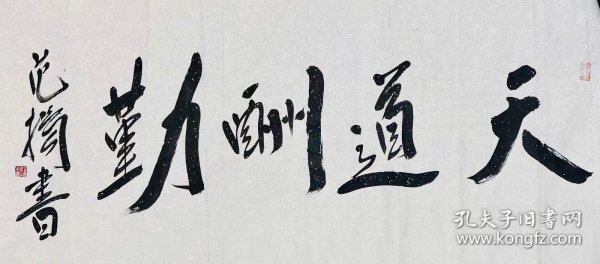 天道酬勤
范扬書
孔夫子旧书网
www.kongfz.com